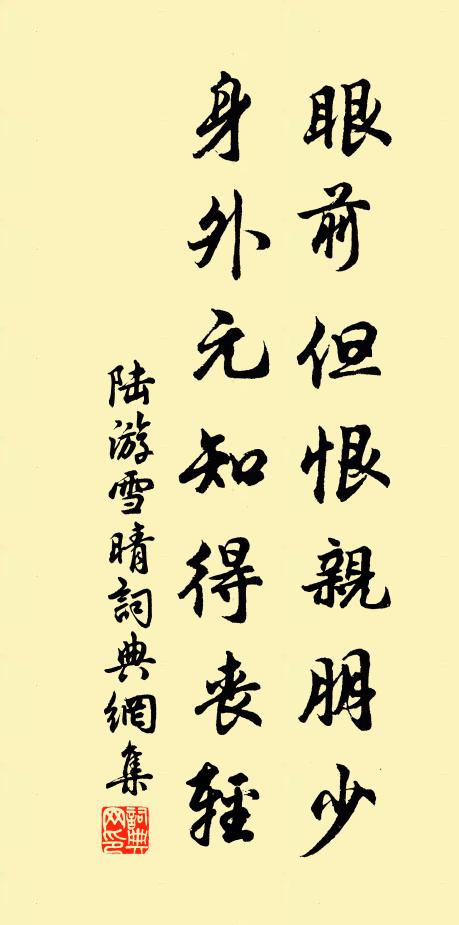 眼前但恨親朋少
身外元知得喪輕
陆游雪晴詞典網集
詞典网印